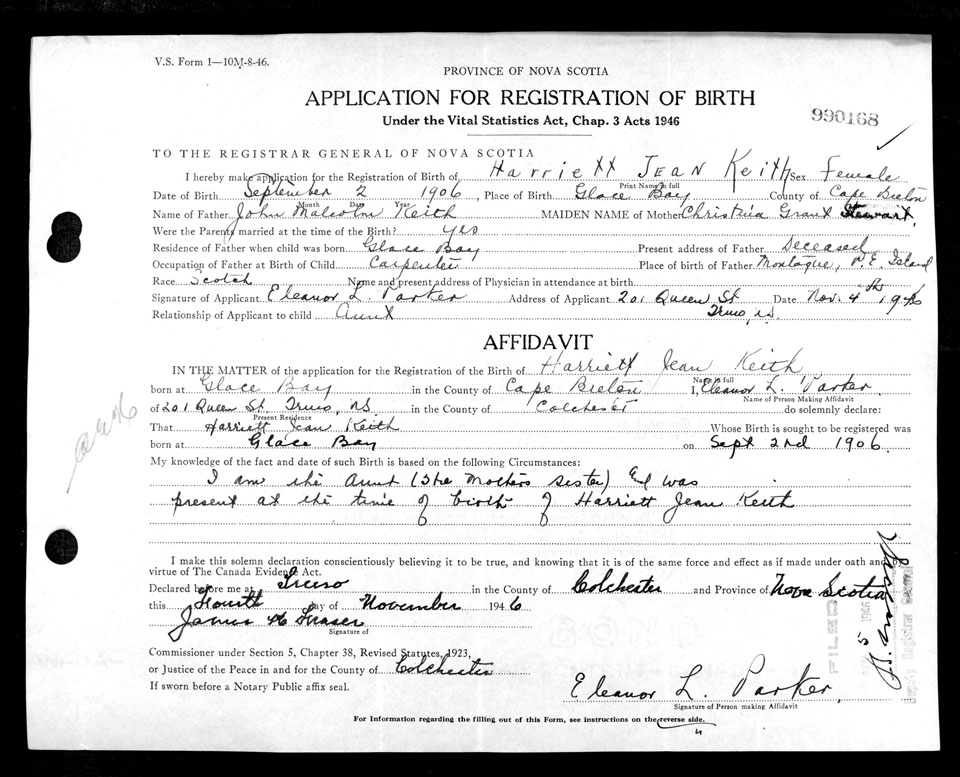 V.S. Form 1—10M-8-46.
PROVINCE OF NOVA SCOTIA
APPLICATION FOR REGISTRATION OF BIRTH
Under the Vital Statistics Act, Chap. 3 Acts 1946
990168
TO THE REGISTRAR GENERAL OF NOVA SCOTIA
I hereby make application for the Registration of Birth of Harriett Jean Keith Sex Female
Print Name in full
Date of Birth September 2 1906, Place of Birth Glace Bay County of Cape Breton
Month Date Year
Name of Father John Malcolm Keith MAIDEN NAME of Mother Christina Grant Stewart
Were the Parents married at the time of the Birth? yes
Residence of Father when child was born Glace Bay Present address of Father Deceased
Occupation of Father at Birth of Child Carpenter Place of birth of Father Montague, P.E Island
Race Scotch Name and present address of Physician in attendance at birth
Signature of Applicant Eleanor L. Parker Address of Applicant 201 Queen St Date Nov. 4th 1946
Relationship of Applicant to child Aunt Truro, N.S.
AFFIDAVIT
IN THE MATTER of the application for the Registration of the Birth of Harriett Jean Keith
Name in full
born at Glace Bay in the County of Cape Breton I, Eleanor L. Parker
Name of Person Making Affidavit
of 201 Queen St Truro, NS. in the County of Colchester do solemnly declare:
Present Residence
That Harriett Jean Keith Whose Birth is sought to be registered was
born at Glace Bay on Sept 2nd 1906.
My knowledge of the fact and date of such Birth is based on the following Circumstances:
I am the Aunt (the mothers sister) & I was
present at the time of birth of Harriett Jean Keith
I make this solemn declaration conscientiously believing it to be true, and knowing that it is of the same force and effect as if made under oath and by
virtue of The Canada Evidence Act.
Declared before me at Truro in the County of Colchester and Province of Nova Scotia
this Fourth day of November 1946
James H Fraser
Signature of
Commissioner under Section 5, Chapter 38, Revised Statutes, 1923,
or Justice of the Peace in and for the County of Colchester
If sworn before a Notary Public affix seal.
Eleanor L. Parker
Signature of Person making Affidavit
For Information regarding the filling out of this Form, see instructions on the reverse side.
FILED